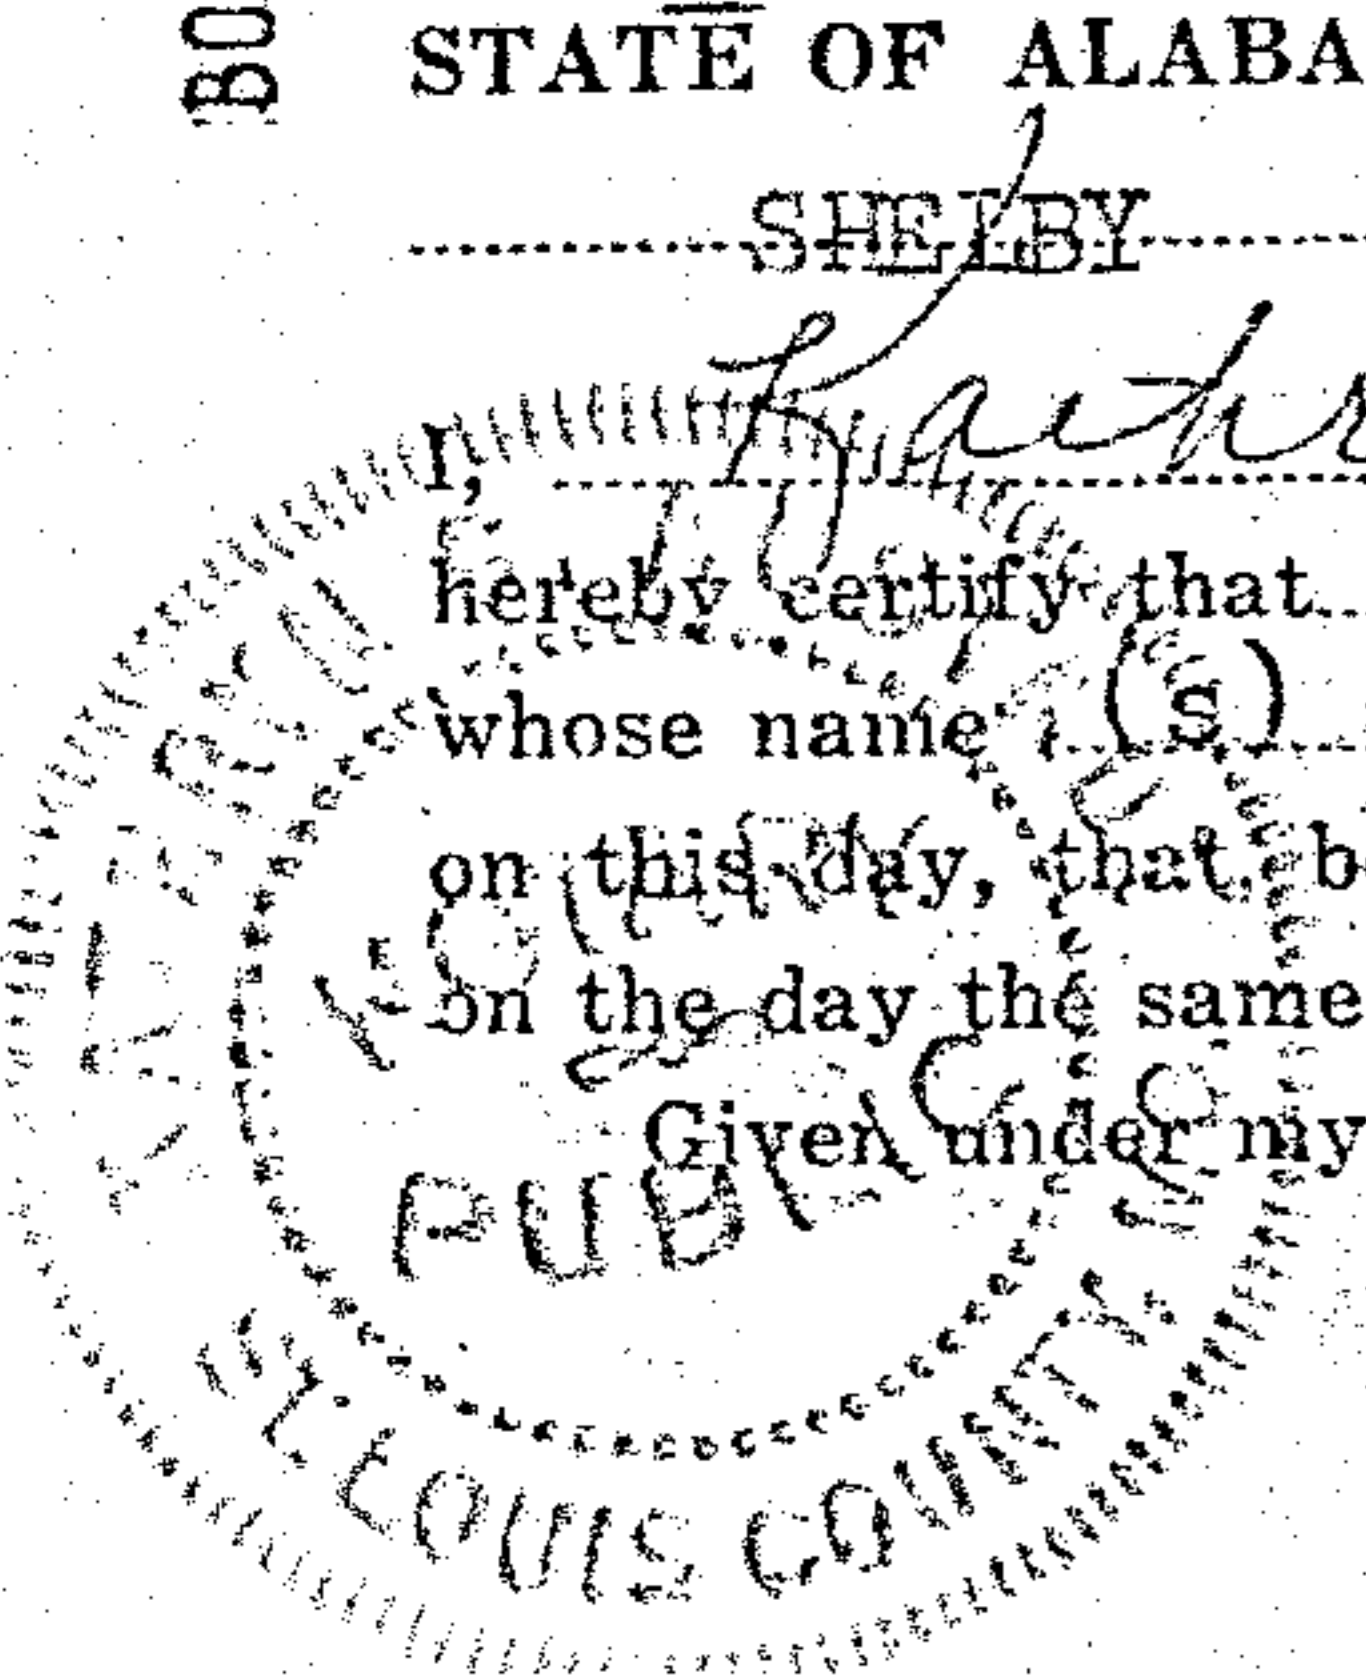 BO
STATE OF ALABA
SHELBY
I,
hereby certify that
whose name (s)
on this day, that b
on the day the same
Given under my
NOTARY
PUBLIC
ST. LOUIS COUNTY